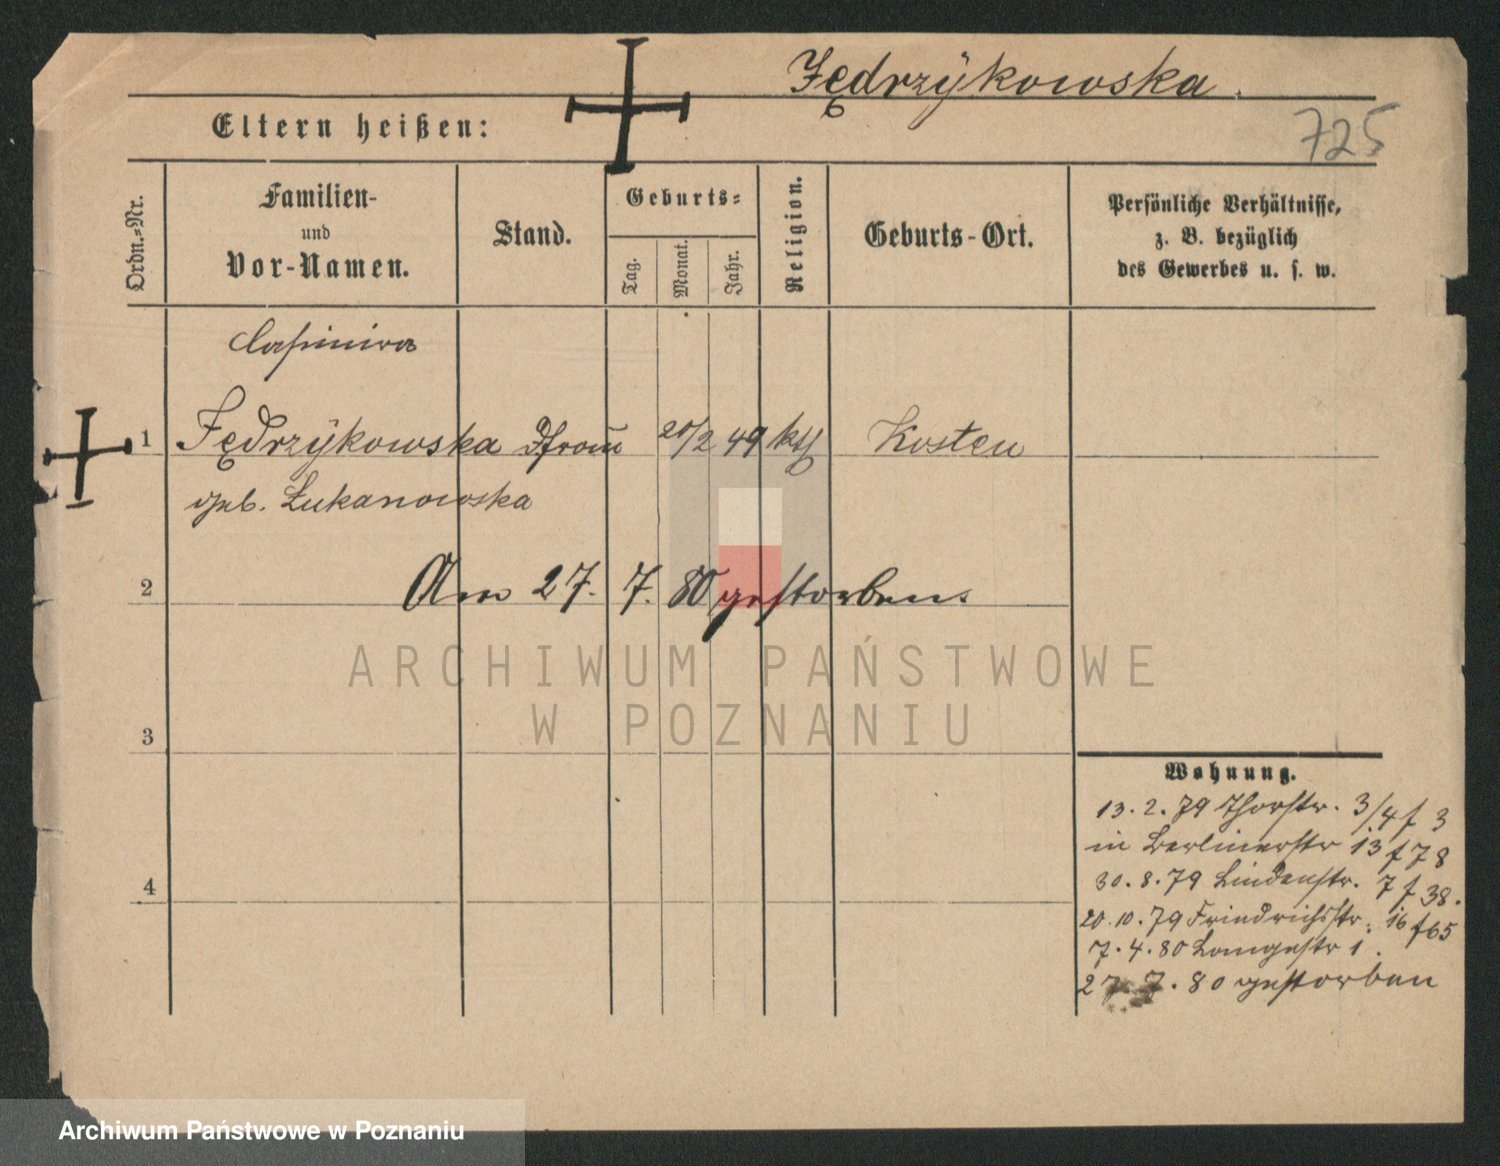 Jędrzÿkowska.
725
Eltern heißen:
Ordn.-Nr.
Familien-
und
Vor-Namen.
Stand.
Geburts-
Tag.
Monat.
Jahr.
Religion.
Geburts-Ort.
Persönliche Verhältnisse,
z. B. bezüglich
des Gewerbes u. s. w.
Casimira
1 Jędrzÿkowska 20/2 49 kth Kosten
geb. Łukanowska
2 Am 27. 7. 80 gestorben.
3
4
Wohnung.
13. 2. 79 Thorstr. 3/4 f 3
in Berlinerstr 13 f 78
30. 8. 79 Lindenstr. 7 f 38.
20. 10. 79 Friedrichsstr. 16 f 65
7. 4. 80 Langestr 1.
27. 7. 80 gestorben
ARCHIWUM PAŃSTWOWE
W POZNANIU
Archiwum Państwowe w Poznaniu